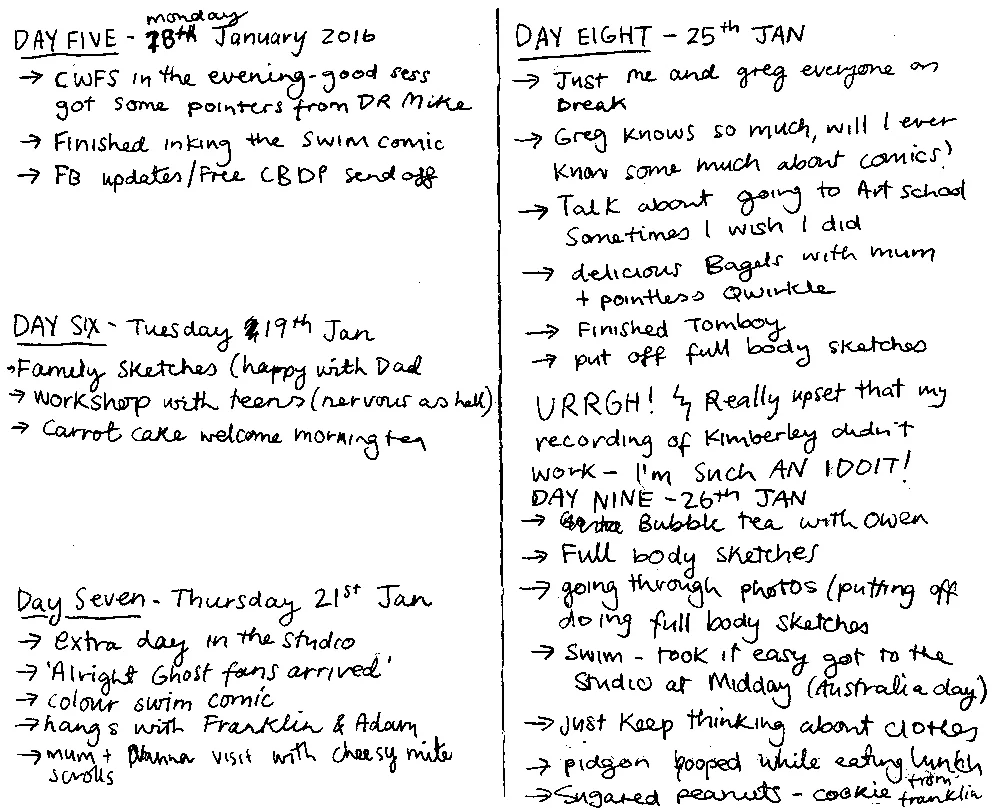 DAY FIVE - monday 18th January 2016
→ CWFS in the evening - good sess
got some pointers from DR Mike
→ Finished inking the Swim comic
→ FB updates/Free CBDP send off
DAY SIX - Tuesday 19th Jan
→ Family Sketches (happy with Dad
→ workshop with teens (nervous as hell)
→ Carrot cake welcome morning tea
Day Seven - Thursday 21st Jan
→ extra day in the studio
→ 'Alright Ghost fans arrived'
→ colour swim comic
→ hangs with Franklin & Adam
→ mum + Nanna visit with cheesy mite
scrolls
DAY EIGHT - 25th JAN
→ Just me and greg everyone on
break
→ Greg knows so much, will I ever
know some much about comics?
→ Talk about going to Art school
Sometimes I wish I did
→ delicious Bagels with mum
+ pointless Qwirkle
→ Finished Tomboy
→ put off full body sketches
URRGH! Really upset that my
recording of Kimberley didn't
work - I'm such AN IDOIT!
DAY NINE - 26th JAN
→ Bubble tea with Owen
→ Full body sketches
→ going through photos (putting off
doing full body sketches
→ Swim - took it easy got to the
Studio at Midday (Australia day)
→ just keep thinking about clothes
→ pidgon pooped while eating lunch
→ Sugared peanuts - cookie from franklin